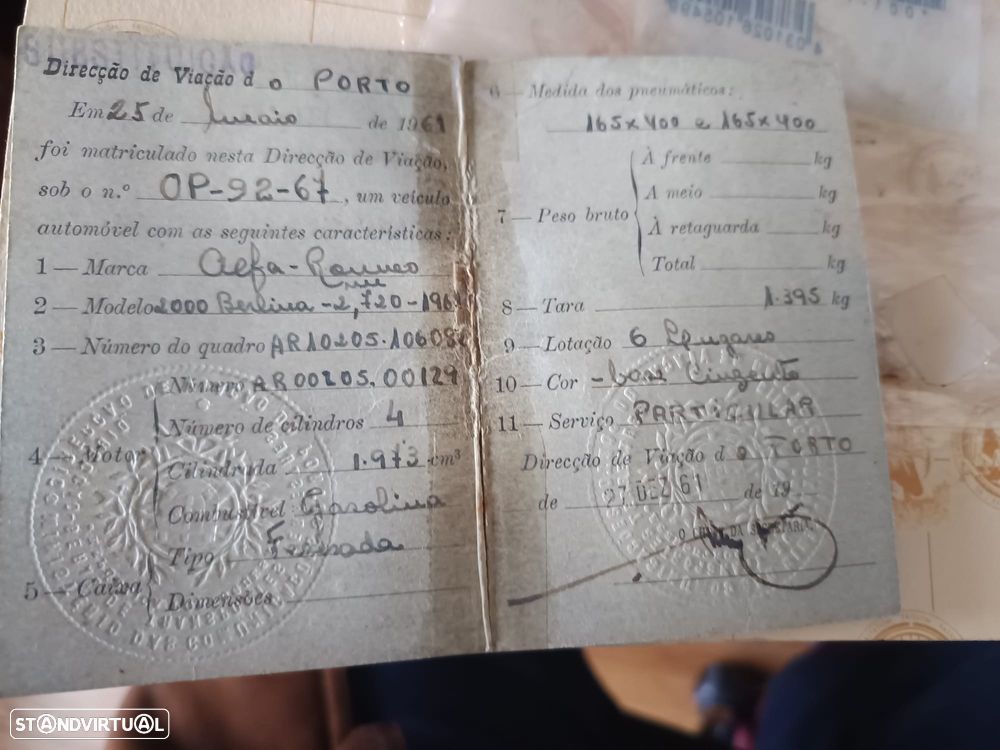 Direcção de Viação d o PORTO
Em 25 de Maio de 1961
foi matriculado nesta Direcção de Viação,
sob o n.º OP-92-67, um veículo
automóvel com as seguintes características:
1 — Marca Alfa-Romeo
2 — Modelo 2000 Berlina - 2,720 - 196
3 — Número do quadro AR10205.10608
Número AR00205.00129
Número de cilindros 4
4 — Motor
Cilindrada 1.973 cm³
Combustível Gasolina
Tipo Fechada
5 — Caixa
Dimensões
6 — Medida dos pneumáticos:
165x400 e 165x400
À frente kg
A meio kg
7 — Peso bruto
À retaguarda kg
Total kg
8 — Tara 1.395 kg
9 — Lotação 6 Lugares
10 — Cor Cinzento
11 — Serviço PARTICULAR
Direcção de Viação d o PORTO
de 27 DEZ 61 de 19
STANDVIRTUAL